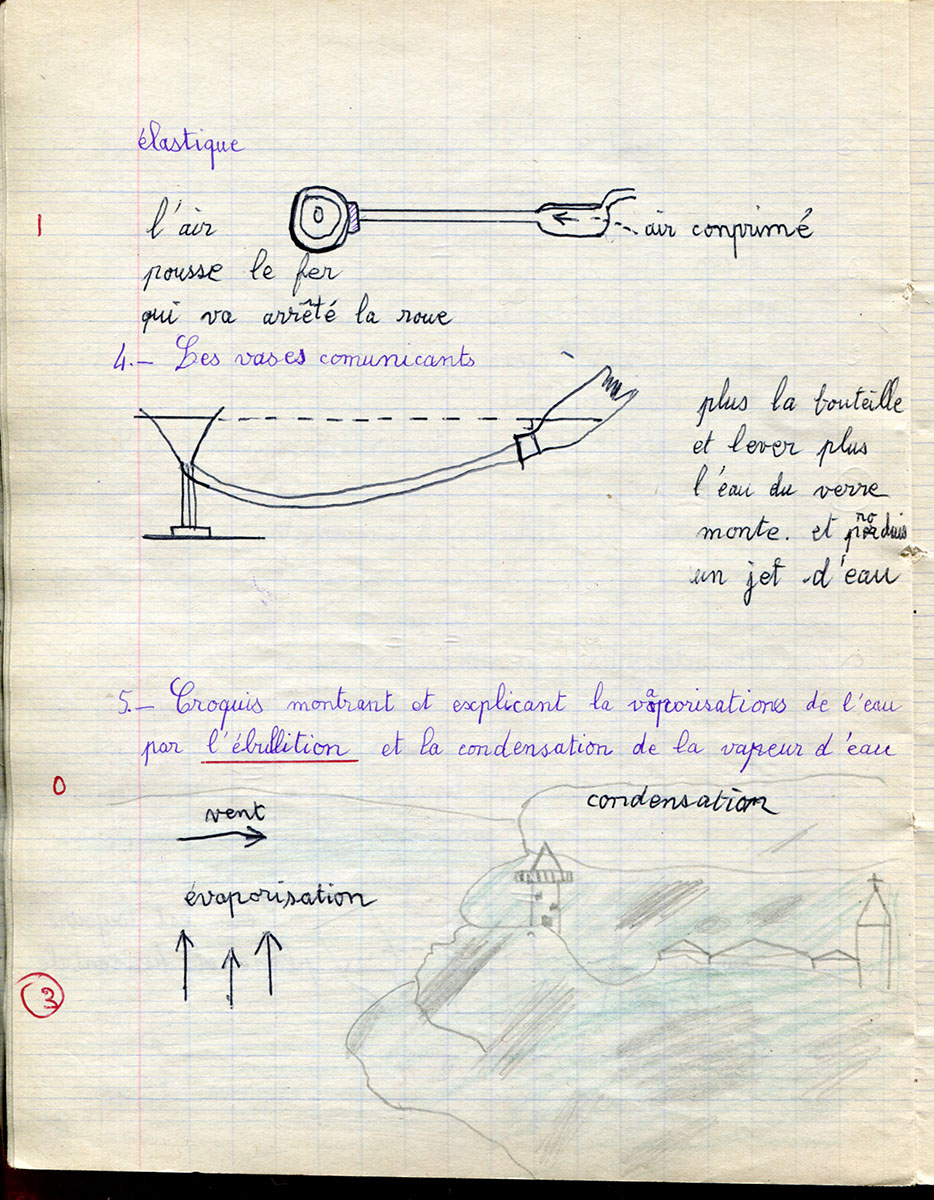 élastique
1
l'air
air conprimé
pousse le fer
qui va arrêté la roue
4.- Les vases comunicants
plus la bouteille
et lever plus
l'eau du verre
monte. et produis
un jet d'eau
5.- Croquis montrant et explicant la vaporisations de l'eau
par l'ébullition et la condensation de la vapeur d'eau
0
condensation
vent
évaporisation
3